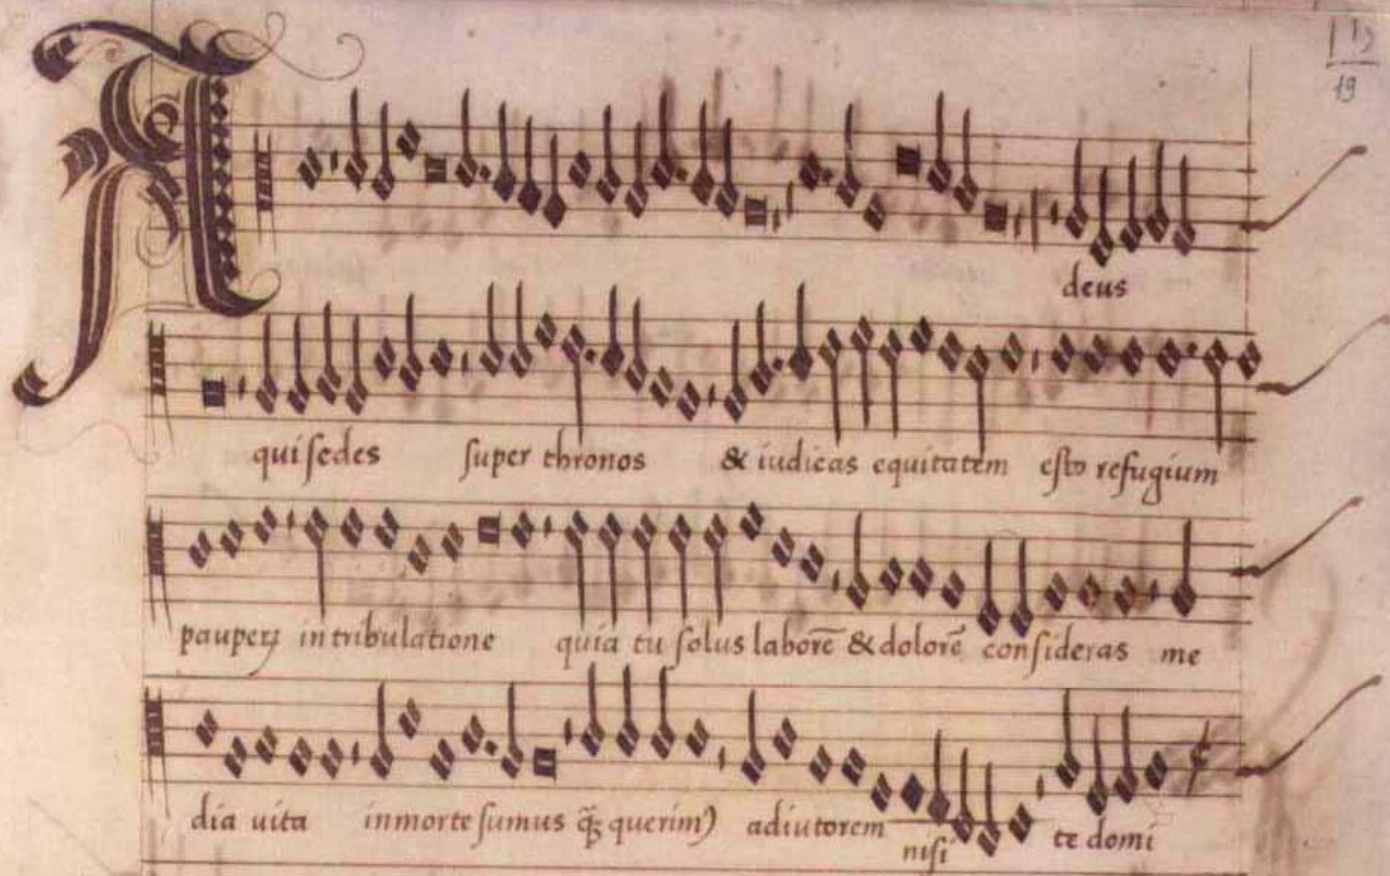 19
A
deus
qui sedes super thronos & iudicas equitatem esto refugium
pauperꝫ in tribulatione quia tu solus laborē & dolorē consideras me
dia uita in morte sumus querim) adiutorem nisi te domi